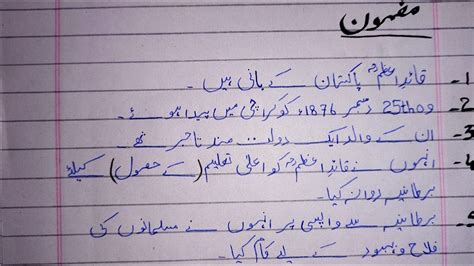 مضمون
1- قائداعظمؒ پاکستان کے بانی ہیں۔
2- وہ 25th دسمبر 1876ء کو کراچی میں پیدا ہوئے۔
3- ان کے والد ایک دولت مند تاجر تھے
4- انہوں نے قائداعظمؒ کو اعلیٰ تعلیم (کے حصول) کیلئے
برطانیہ روانہ کیا۔
5- برطانیہ سے واپسی پر انہوں نے مسلمانوں کی
فلاح و بہبود کے لیے کام کیا۔